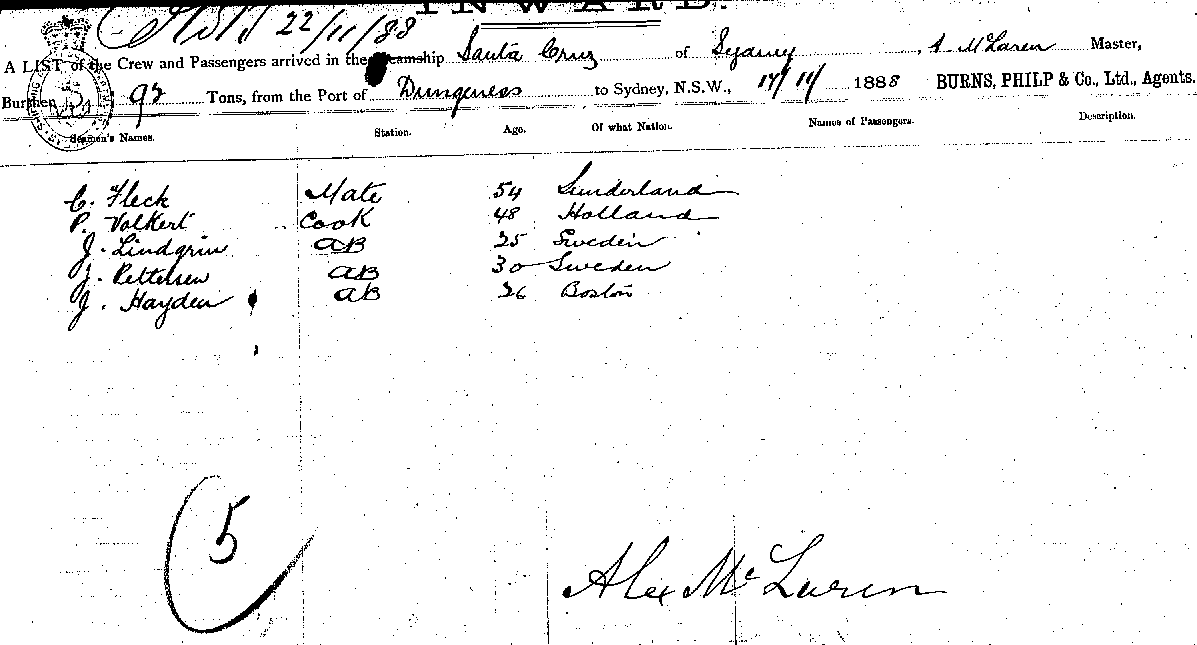 INWARD.
22/11/88
A LIST of the Crew and Passengers arrived in the steamship Santa Cruz of Sydney, A McLaren Master,
Burthen 92 Tons, from the Port of Dungeness to Sydney, N.S.W., 17/11/ 1888 BURNS, PHILP & Co., Ltd., Agents.
Seamen's Names. Station. Age. Of what Nation. Names of Passengers. Description.
C. Fleck Mate 54 Sunderland
P. Volkert Cook 48 Holland
J. Lindgrin AB 25 Sweden
J. Pettersen AB 30 Sweden
J. Hayden AB 26 Boston
5
Alex McLaren